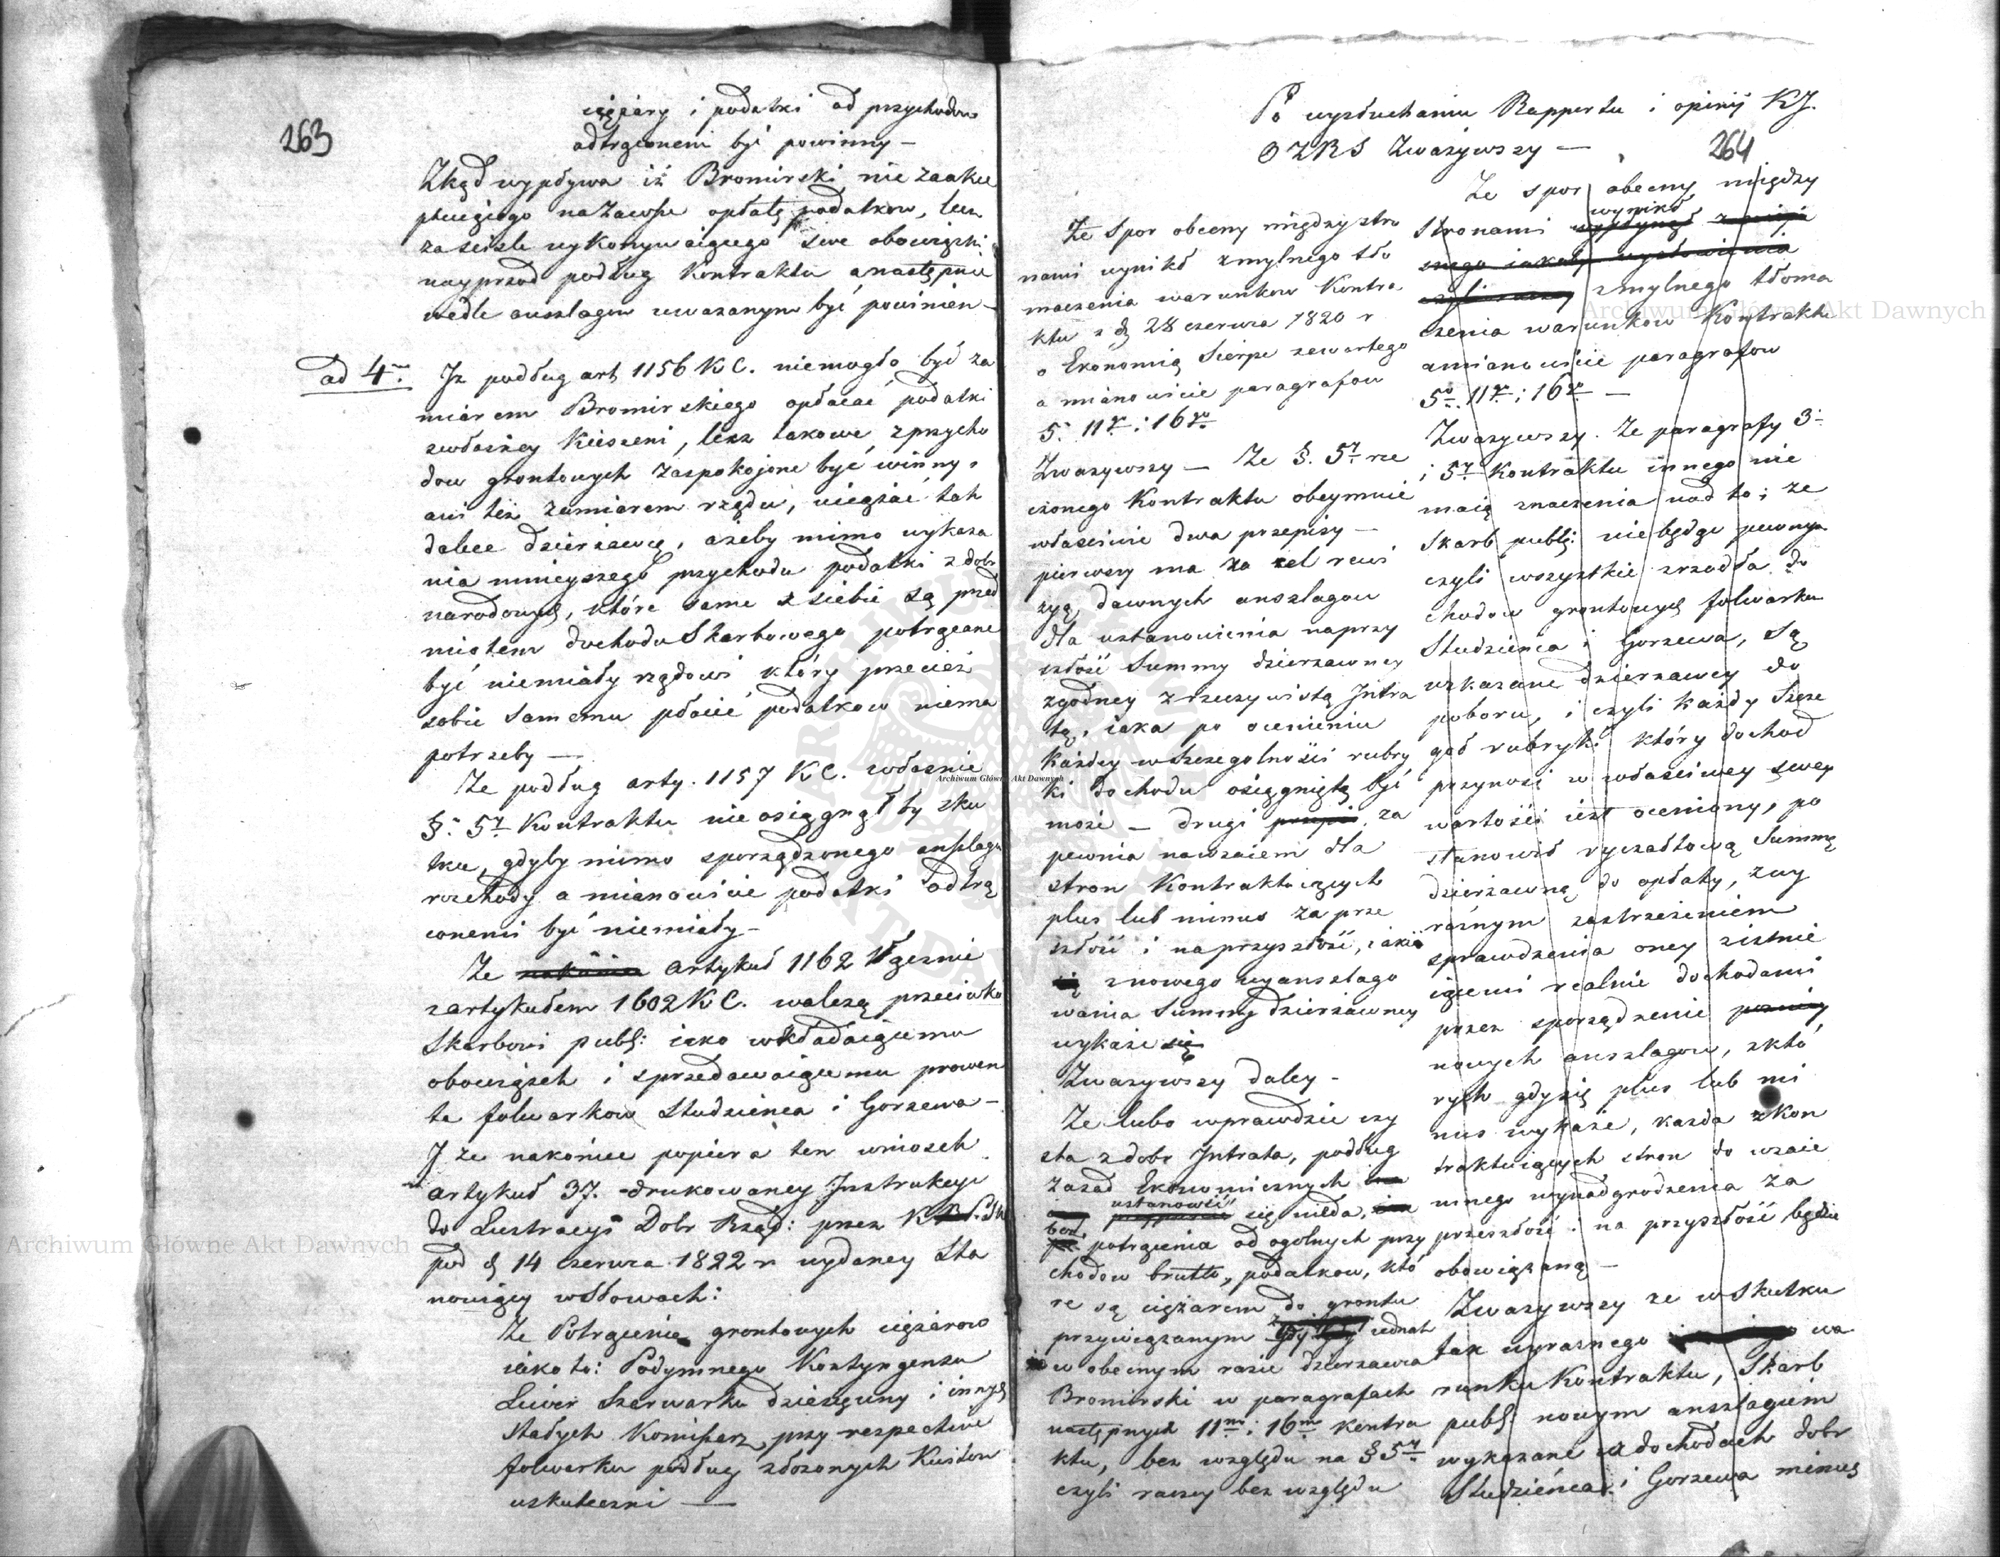 263
ciężary i podatki od przychodow
odtrąconemi być powinny —
Zkąd wypływa iż Bromirski nie zaakce
ptuiącego na zawsze opłatę podatkow, lecz
za scisle wykonywaiącego swe obowiązki
nayprzod podług Kontraktu a następnie
wedle anszlagow uwazanym być powinien —
ad 4m. Iz podług art 1156 K C. niemogło być za
miarem Bromirskiego opłacać podatki
zwłasney kieszeni, lecz takowe z przycho
dow grontowych zaspokojone być winny,
ani też zamiarem rządu, uciążać tak
dalece dzierzawcę, ażeby mimo wykaza
nia mnieyszego przychodu podatki z dobr
narodowych, które same z siebie są przed
miotem dochodu Skarbowego potrącane
być niemiały rządowi który przecież
sobie samemu płacić podatkow niema
potrzeby —
Ze podług arty. 1157 K C. własnie
§: 5ty Kontraktu nie osiągnął by sku
tku, gdyby mimo sporządzonego anszlagu
rozchody a mianowicie podatki odtrą
conemi być niemiały —
Ze artykuł 1162 łącznie
z artykułem 1602 K C. walczą przeciwko
Skarbowi publ: iako wkładaiącemu
obowiązek i sprzedawaiącemu prowen
ta folwarkow Studzienca i Gorzewa —
I ze nakoniec popiera ten wniosek
artykuł 37. drukowaney Instrukcyi
do Lustracyi Dobr Rząd: przez K
pod d 14 czerwca 1822 r wydaney sta
nowiący w słowach:
Ze Potrącenie grontowych ciężarow
iako to: Podymnego Kontyngensu
Liwer Szarwarku dziesięciny i innych
stałych Komissarz przy respective
folwarku podług złozonych Kwitow
uskuteczni —
Po wysłuchaniu Rapportu i opinij KJ.
O Z R S Zwazywszy —
264
Ze spor obecny między stro
nami wynikł zmylnego tło
maczenia warunkow Kontra
ktu z d 28 czerwca 1820 r
o Ekonomią Sierpc zawartego
a mianowicie paragrafow
5. 11go i 16go
Zwazywszy — Ze §. 5ty rze
czonego Kontraktu obeymuie
właściwie dwa przepisy —
pierwszy ma za cel rewi
zyą dawnych anszlagow
dla ustanowienia na przy
szłość Summy dzierzawney
zgodney z rzeczywistą Intra
tą, iaka po ocenieniu
każdey w szczegolności rubry
ki dochodu osiągniętą być
może — drugi przepis za
pewnia nawzaiem dla
stron Kontraktuiących
plus lub minus za prze
szłość i na przyszłość, iakie
z nowego wyanszlago
wania Summy dzierzawney
wykaże się
Zwazywszy daley —
Ze lubo wprawdzie czy
sta z dobr Intrata, podług
zasad Ekonomicznych
ustanowić się nieda,
bez potrącenia od ogolnych przy
chodow brutto, podatkow, któ
re są ciężarem do grontu
przywiązanym gdy jednak
w obecnym razie dzierzawca
Bromirski w paragrafach
następnych 11m i 16m kontra
ktu, bez względu na § 5ty
czyli raczey bez względu
Ze spor obecny między
stronami wynikł
zmylnego tłoma
czenia warunkow Kontraktu
a mianowicie paragrafow
5go 11go i 16go —
Zwazywszy. Ze paragrafy 3:
i 5ty Kontraktu innego nie
maią znaczenia nad to; ze
Skarb publ: niebędąc pewnym
czyli wszystkie zrzodła do
chodow grontowych folwarku
Studzienca i Gorzewa, są
wskazane dzierzawcy do
poboru, i czyli każdy szcze
goł rubryki który dochod
przynosi w właściwey swey
wartości iest oceniony, po
stanowił ryczałtową Summę
dzierzawną do opłaty, zwy
raźnym zastrzeżeniem
sprawdzenia oney z istnie
iącemi realnie dochodami
przez sporządzenie
nowych anszlagow, z któ
rych gdy się plus lub mi
nus wykaże, każda z kon
traktuiących stron do wzaie
mnego wynadgrodzenia za
przeszłość i na przyszłość będzie
obowiązaną —
Zwazywszy ze w skutku
tak wyraznego wa
runku Kontraktu, Skarb
publ: nowym anszlagiem
wykazane w dochodach dobr
Studzienca i Gorzewa minus